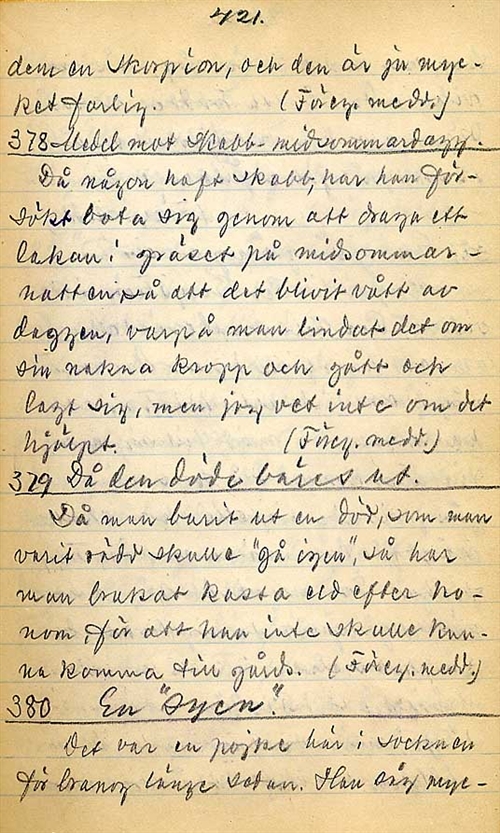 421.
dem en skorpion, och den är ju myc-
ket farlig. (Föreg. medd.)
378 Medel mot skabb - midsommardagg.
Då någon haft skabb, har han för-
sökt bota sig genom att draga ett
lakan i gräset på midsommar-
natten så att det blivit vått av
daggen, varpå man lindat det om
sin nakna kropp och gått och
lagt sig, men jag vet inte om det
hjälpt. (Föreg. medd.)
379 Då den döde bäres ut.
Då man burit ut en död, som man
varit rädd skulle "gå igen", så har
man brukat kasta eld efter ho-
nom, för att han inte skulle kun-
na komma till gårds. (Föreg. medd.)
380 En "syen".
Det var en pojke här i socknen
för länge sedan. Han såg myc-